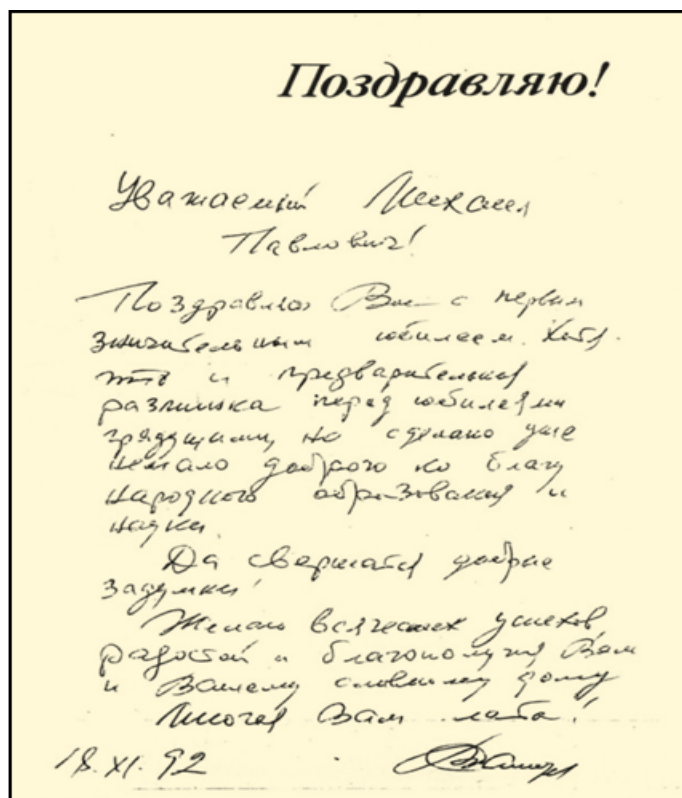 Поздравляю!
Уважаемый Михаил
Павлович!
Поздравляю Вас с первым
значительным юбилеем. Хотя
это и предварительная
разминка перед юбилеями
грядущими, но сделано уже
немало доброго ко благу
народного образования и
науки.
Да свершатся добрые
задумки!
Желаю всяческих успехов,
радостей и благополучия Вам
и Вашему славному дому
Многая Вам лета!
18.XI.92